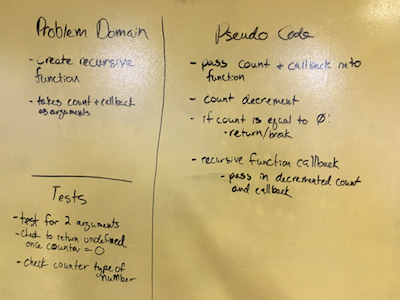 Problem Domain
- create recursive
function
- takes count + callback
as arguments
Tests
- test for 2 arguments
- check to return undefined
once counter = 0
- check counter type of
number
Pseudo Code
- pass count + callback into
function
- count decrement
- if count is equal to 0:
- return/break
- recursive function callback
- pass in decremented count
and callback